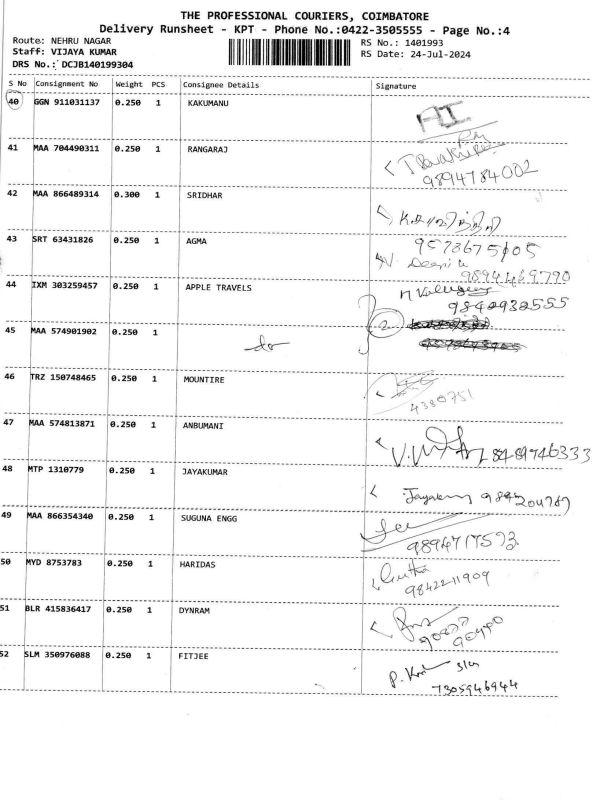 THE PROFESSIONAL COURIERS, COIMBATORE
Delivery Runsheet - KPT - Phone No.:0422-3505555 - Page No.:4
Route: NEHRU NAGAR
Staff: VIJAYA KUMAR
DRS No.: DCJB140199304
RS No.: 1401993
RS Date: 24-Jul-2024
S No Consignment No Weight PCS Consignee Details Signature
40 GGN 911031137 0.250 1 KAKUMANU
41 MAA 704490311 0.250 1 RANGARAJ
9894784002
42 MAA 866489314 0.300 1 SRIDHAR
43 SRT 63431826 0.250 1 AGMA
V. Deepika
9894469790
44 IXM 303259457 0.250 1 APPLE TRAVELS
9842932555
2
45 MAA 574901902 0.250 1
do
46 TRZ 150748465 0.250 1 MOUNTIRE
4380751
47 MAA 574813871 0.250 1 ANBUMANI
8489746333
48 MTP 1310779 0.250 1 JAYAKUMAR
49 MAA 866354340 0.250 1 SUGUNA ENGG
9894717593
50 MYD 8753783 0.250 1 HARIDAS
9842211909
51 BLR 415836417 0.250 1 DYNRAM
52 SLM 350976088 0.250 1 FITJEE
7305946944